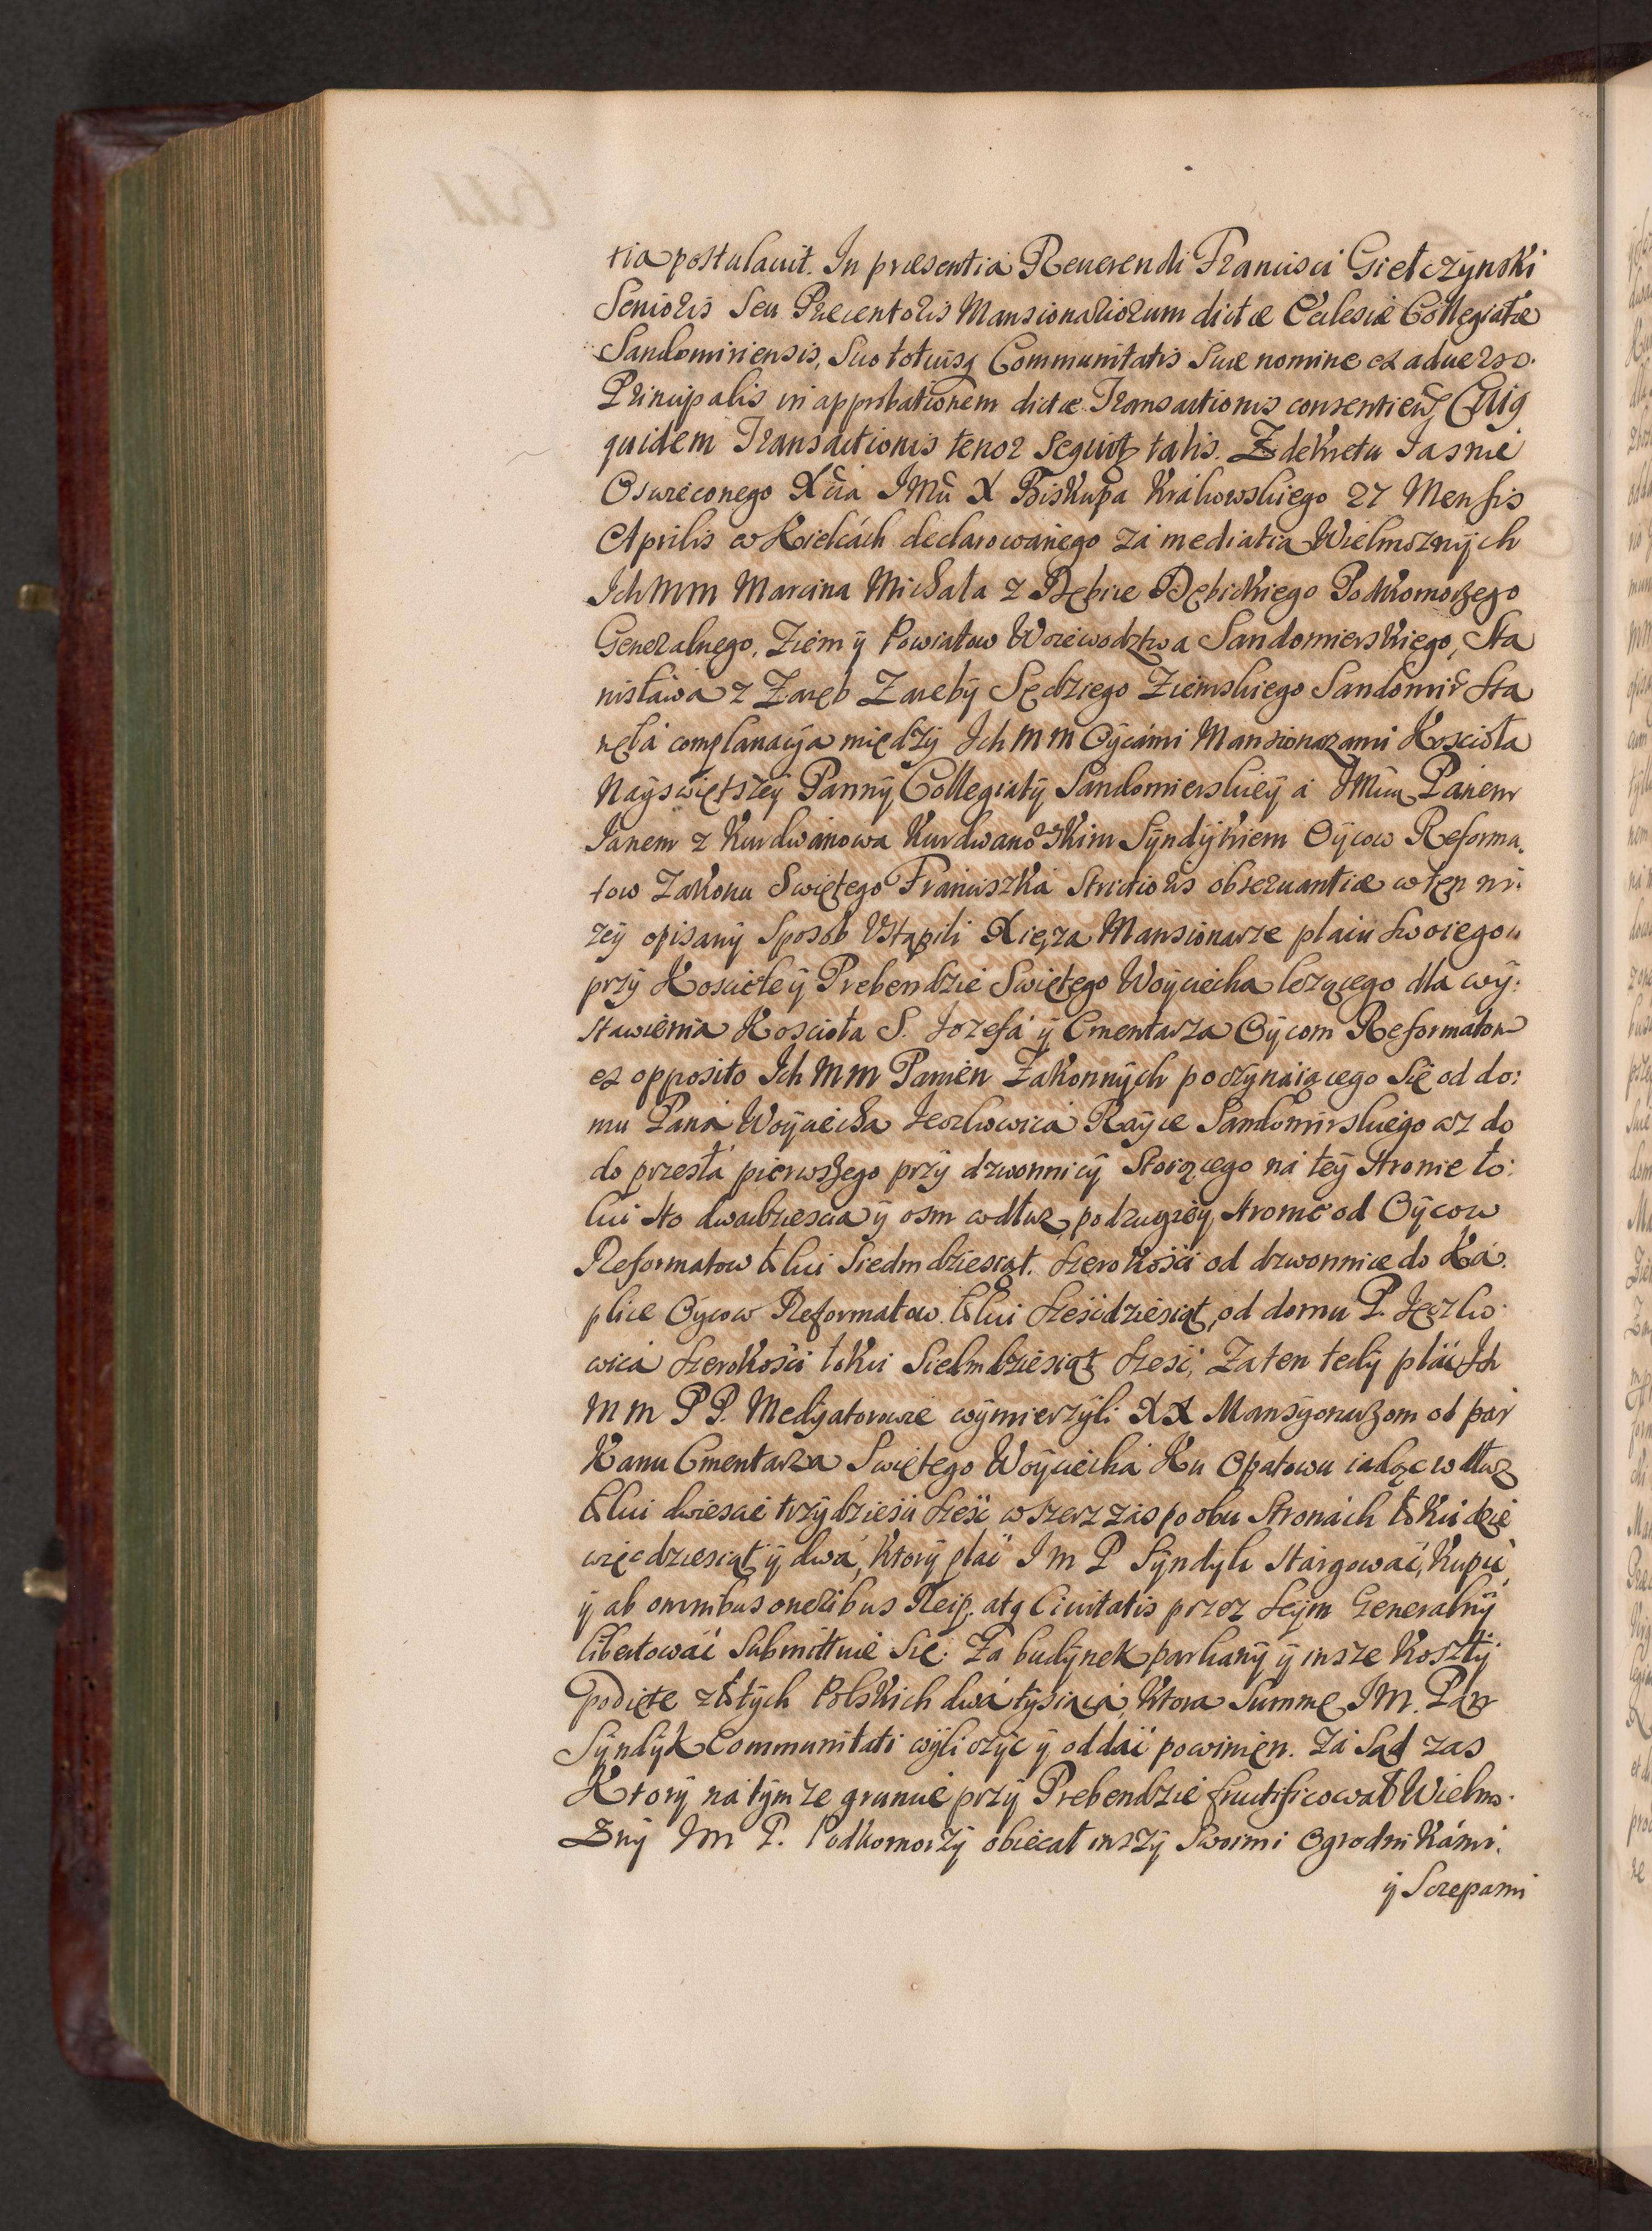 tia postulauit. In præsentia Reuerendi Francisci Giełczynski
Senioris seu Præcentoris Mansionariorum dictæ Ecclesiæ Collegiatæ
Sandomiriensis, suo totiusq Communitatis suæ nomine ex aduerso
Principalis in approbationem dictæ Transactionis consentien Cuiq
quidem Transactionis tenor sequit talis. Z dekretu Jasnie
Oswieconego Xcia JMci X Biskupa Krakowskiego 27 Mensis
Aprilis w Kielcách declarowanego zá mediatia Wielmoznych
Ich mm Marcina Michała z Dębice Dębickiego Podkomorzego
Generalnego, Ziem ÿ Powiatow Woiewodztwa Sandomierskiego, Sta
nisława z Zaręb Zaręby Sędziego Ziemskiego Sandomir Sta
nęłá complanacÿa międzÿ Ich mm Oÿcámi Mansionarzami Kosciołá
Nayswiętszeÿ Pannÿ Collegiatÿ Sandomierskieÿ á JMcią Panem
Janem z Kurdwanowa Kurdwanowskim Sÿndÿkiem Oÿcow Reforma
tow Zakonu Swiętego Franciszká Strictioris obseruantiæ w ten ni
zeÿ opisanÿ sposob Vstąpili Xięza Mansionarze placu swoiego
przÿ Kosciele ÿ Prebendzie Swiętego Woÿciecha lezącego dla wÿ
stawienia Kosciołá S. Jozefá ÿ Cmentarza Oÿcom Reformatom
ex opposito Ich mm Panien Zakonnÿch poczÿnaiącego się od do:
mu Paná Woÿciecha Jeczkowicá Raÿce Sandomirskiego az do
do przesłá pierwszego przÿ dzwonnicÿ stoiącego ná teÿ stronie ło:
kci sto dwadziescia ÿ osm wdłuz, po drugieÿ stronie od Oÿcow
Reformatow łokci siedmdziesiąt. szerokosci od dzwonnice do Ká
plice Oÿcow Reformatow łokci szescdziesiąt, od domu P. Jeczko
wicá szerokosci łokci siedmdziesiąt szesc, Za ten tedÿ plac Ich
mm P P. Medÿatorowie wÿmierzÿli XX Mansÿonarzom od par
kanu Cmentarza Swiętego Woÿciechá ku Opatowu iadąc wdłuz
łokci dwiescie trzÿdziesci szesc wszerz zás po obu stronách łokci dzie
więcdziesiąt ÿ dwá, ktorÿ plac Jm P Sÿndÿk stárgowác, kupic
ÿ ab omnibus oneribus Reip. atq Ciuitatis przez seÿm Generalnÿ
libertowác submittuie się: Zá budÿnek parkanÿ ÿ insze kosztÿ
podięte złotÿch Polskich dwá tÿsiącá, ktora summę JM. Pan
Sÿndÿk Communitati wÿliczÿc ÿ oddác powinien. Zá sad zas
ktorÿ ná tÿmze gruncie przÿ Prebendzie fructificował Wielmo
znÿ Jm P. Podkomorzÿ obiecał inszÿ swoimi ogrodnikámi
ÿ Sczepami